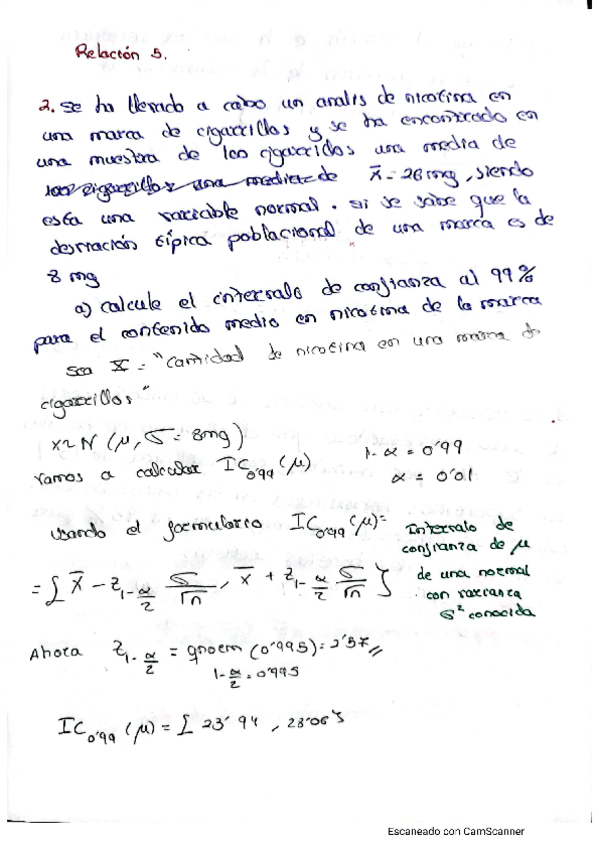 Relación 5.
2. Se ha llevado a cabo un analis de nicotina en
una marca de cigarrillos y se ha encontrado en
una muestra de 100 cigarrillos una media de
x̄ = 26 mg, siendo
esta una variable normal. Si se sabe que la
desviación típica poblacional de una marca es de
8 mg
a) calcule el intervalo de confianza al 99%
para el contenido medio en nicotina de la marca
Sea X = "Cantidad de nicotina en una marca de
cigarrillos"
X~N (μ, σ = 8mg)
1-α = 0'99
Vamos a calcular IC₀'₉₉ (μ)
α = 0'01
usando el formulario IC₀'₉₉ (μ)=
Intervalo de
confianza de μ
de una normal
con varianza
σ² conocida
= [ X̄ - Z_{1-α/2} σ/√n, X̄ + Z_{1-α/2} σ/√n ]
Ahora Z_{1-α/2} = qnorm (0'995) = 2'57
1-α/2 = 0'995
IC₀'₉₉ (μ) = [ 23'94, 28'06 ]
Escaneado con CamScanner